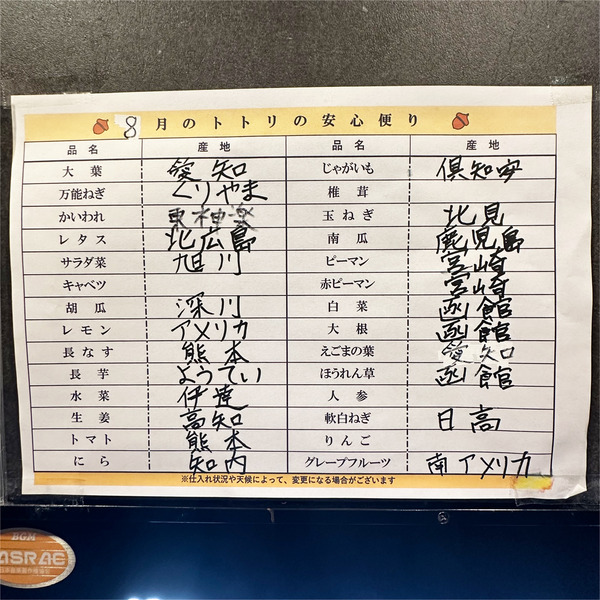 8月のトトリの安心便り
品名 産地 品名 産地
大葉 愛知 じゃがいも 倶知安
万能ねぎ くりやま 椎茸
かいわれ 東神楽 玉ねぎ 北見
レタス 北広島 南瓜 鹿児島
サラダ菜 旭川 ピーマン 宮崎
キャベツ 赤ピーマン 宮崎
胡瓜 深川 白菜 函館
レモン アメリカ 大根 函館
長なす 熊本 えごまの葉 愛知
長芋 ようてい ほうれん草 函館
水菜 伊達 人参
生姜 高知 軟白ねぎ 日高
トマト 熊本 りんご
にら 知内 グレープフルーツ 南アメリカ
※仕入れ状況や天候によって、変更になる場合がございます
BGM
ASRAE